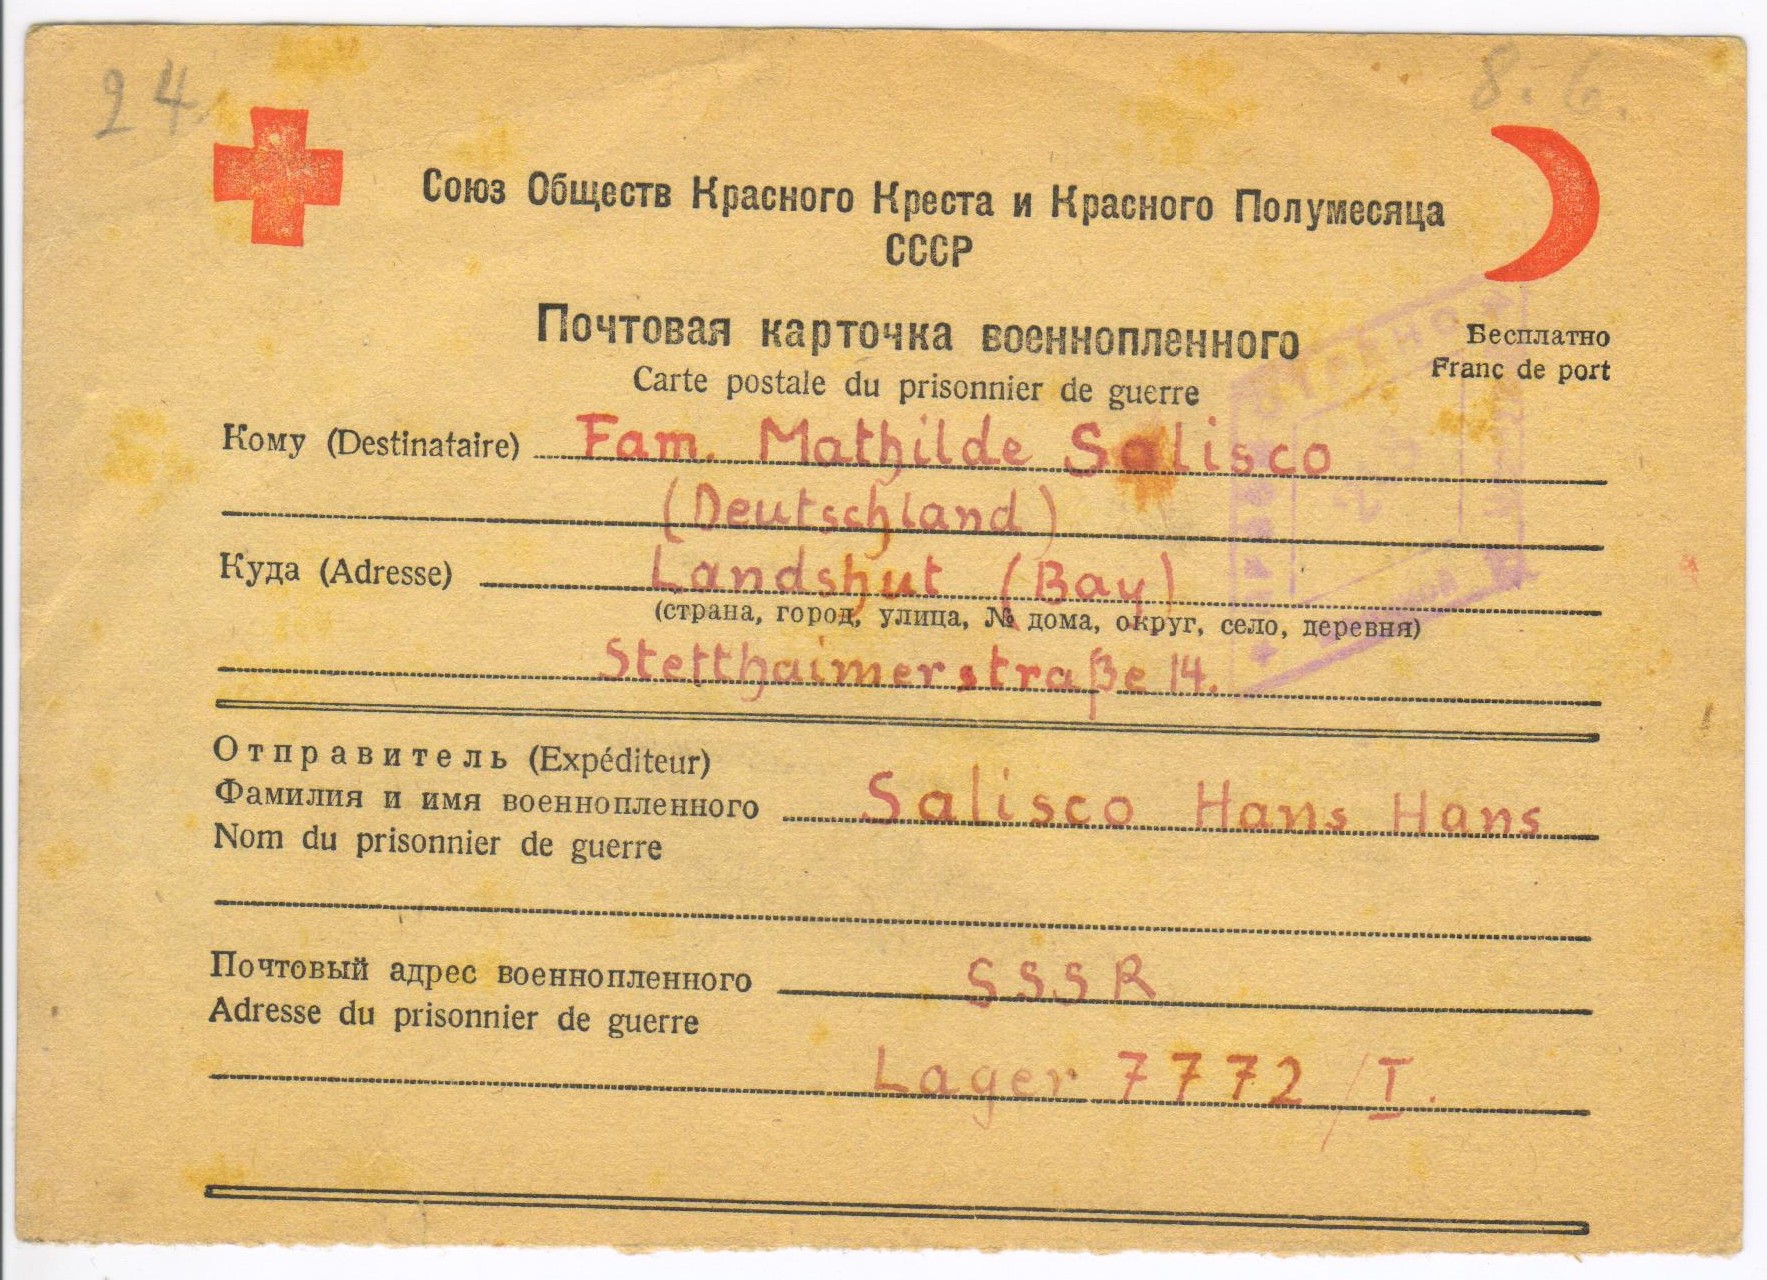 24.
8. 6.
Союз Обществ Красного Креста и Красного Полумесяца
СССР
Почтовая карточка военнопленного
Carte postale du prisonnier de guerre
Бесплатно
Franc de port
Кому (Destinataire) Fam. Mathilde Salisco
(Deutschland)
Куда (Adresse) Landshut (Bay)
(страна, город, улица, № дома, округ, село, деревня)
Stetthaimerstraße 14.
Отправитель (Expéditeur)
Фамилия и имя военнопленного Salisco Hans Hans
Nom du prisonnier de guerre
Почтовый адрес военнопленного SSSR
Adresse du prisonnier de guerre
Lager 7772 / I.